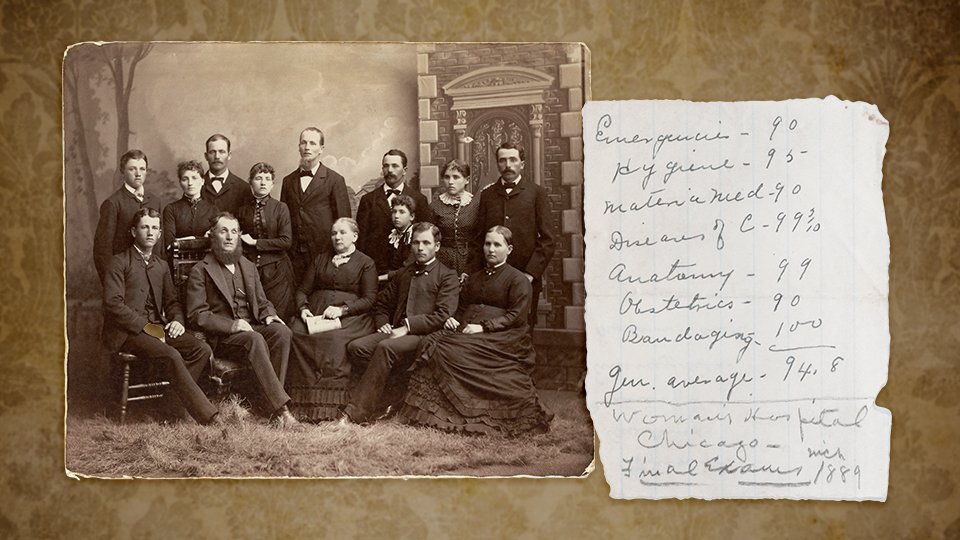 Emergencies - 90
Hygiene - 95
Materia Med - 90
Diseases of C - 99 3/10
Anatomy - 99
Obstetrics - 90
Bandaging - 100
Gen. average - 94.8
Woman's Hospital
Chicago -
Final Exams Mch 1889